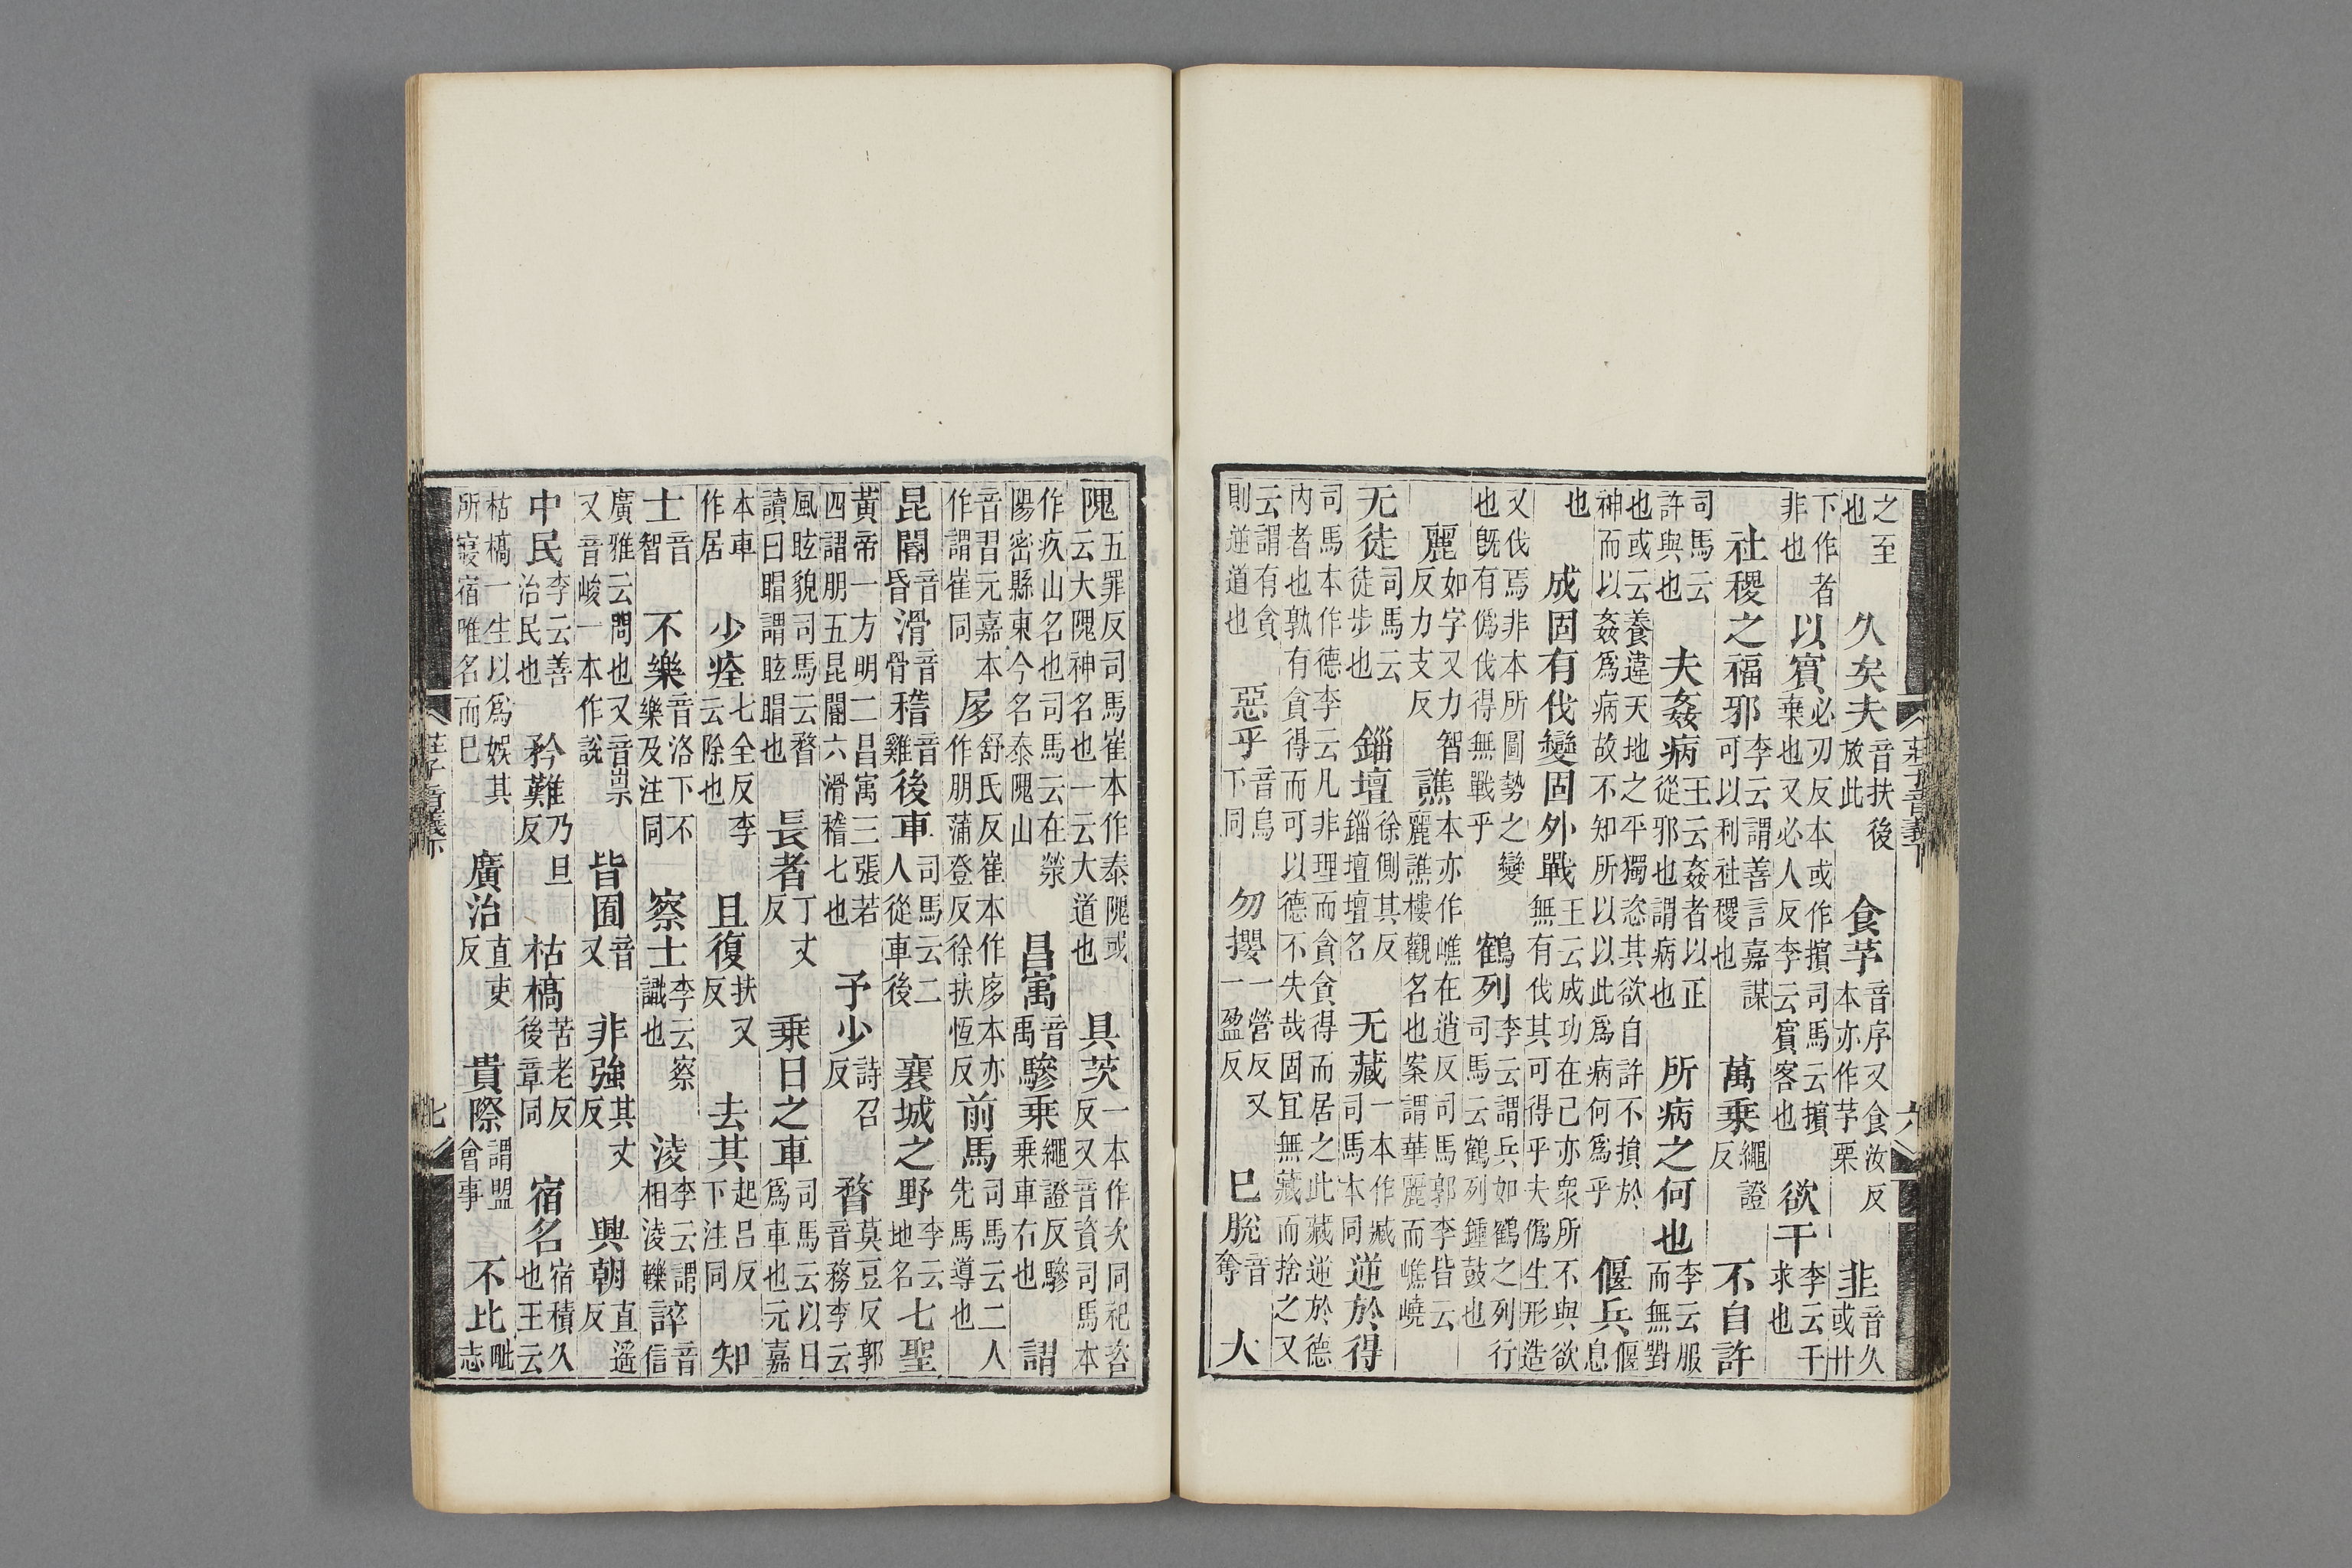 莊子音義下
六
之至也　久矣夫音扶後放此　食芧音序又食汝反本亦作芧栗　韭音久或廾
下作者非也　以賓必刃反本或作擯司馬云擯棄也又必人反李云賓客也　欲干李云干求也
社稷之福邪李云謂善言嘉謀可以利社稷也　萬乘繩證反　不自許
司馬云許與也　夫姦病王云姦者以正從邪也謂病也　所病之何也李云服而無對
也或云養違天地之平獨恣其欲自許不損於神而以姦爲病故不知所以以此爲病何爲乎　偃兵偃息
也　成固有伐變固外戰王云成功在己亦衆所不與欲無有伐其可得乎夫僞生形造
又伐焉非本所圖勢之變也旣有僞伐得無戰乎　鶴列李云謂兵如鶴之列行司馬云鶴列鍾鼓也
麗如字又力智反力支反　譙本亦作嶕在逍反司馬郭李皆云麗譙樓觀名也案謂華麗而嶕嶢
无徒司馬云徒步也　錙壇徐側其反錙壇壇名　无藏一本作臧司馬本同　逆於得
司馬本作德李云凡非理而貪貪得而居之此藏逆於德內者也孰有貪得而可以德不失哉固冝無藏而捨之又
云謂有貪則逆道也　惡乎音烏下同　勿攖一營反又一盈反　已脫音奪　大
隗五罪反司馬崔本作泰隗或云大隗神名也一云大道也　具茨一本作次同祀咨反又音資司馬本
作疚山名也司馬云在滎陽密縣東今名泰隗山　昌寓音禹　驂乘繩證反驂乘車右也　謵
音習元嘉本作謂崔同　舒氏反崔本作本亦作朋蒲登反徐扶恆反　前馬司馬云二人先馬導也
昆閽音昏　滑音骨　稽音雞　後車司馬云二人從車後　襄城之野李云地名　七聖
黃帝一方明二昌寓三張若四謵朋五昆閽六滑稽七也　予少詩召反　瞀莫豆反郭音務李云
風眩貌司馬云瞀讀曰䀛謂眩䀛也　長者丁丈反　乘日之車司馬云以日爲車也元嘉
本車作居　少痊七全反李云除也　且復扶又反　去其起呂反下注同　知
士音智　不樂音洛下不樂及注同　察士李云察識也　淩李云謂相淩轢　誶音信
廣雅云問也又音崇又音峻一本作說　皆囿音又　非強其丈反　興朝直遙反
中民李云善治民也　矜難乃旦反　枯槁苦老反後章同　宿名宿積久也王云
枯槁一生以爲娛其所寢宿唯名而已　廣治直吏反　貴際謂盟會事　不比毗志
莊子音義下
七